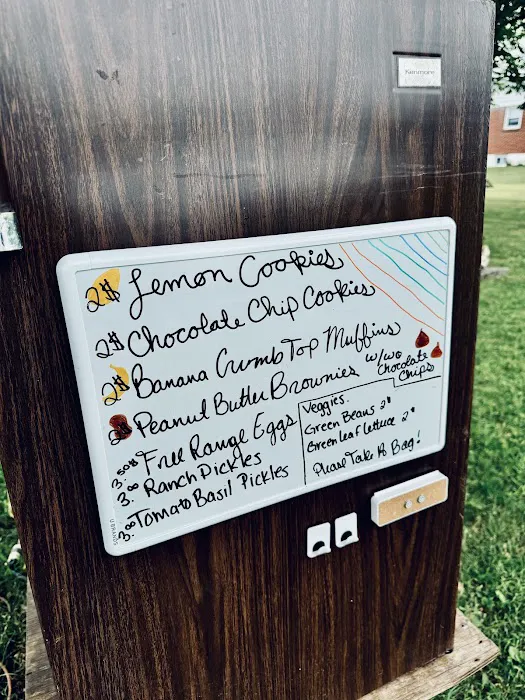 Kenmore
2$ Lemon Cookies
2$ Chocolate Chip Cookies
2$ Banana Crumb Top Muffins
2$ Peanut Butter Brownies w/wo Chocolate Chips
3.50$ Free Range Eggs
3.00 Ranch Pickles
3.00 Tomato Basil Pickles
Veggies.
Green Beans 2$
Green leaf lettuce 2$
Please Take A Bag!
U BRANDS